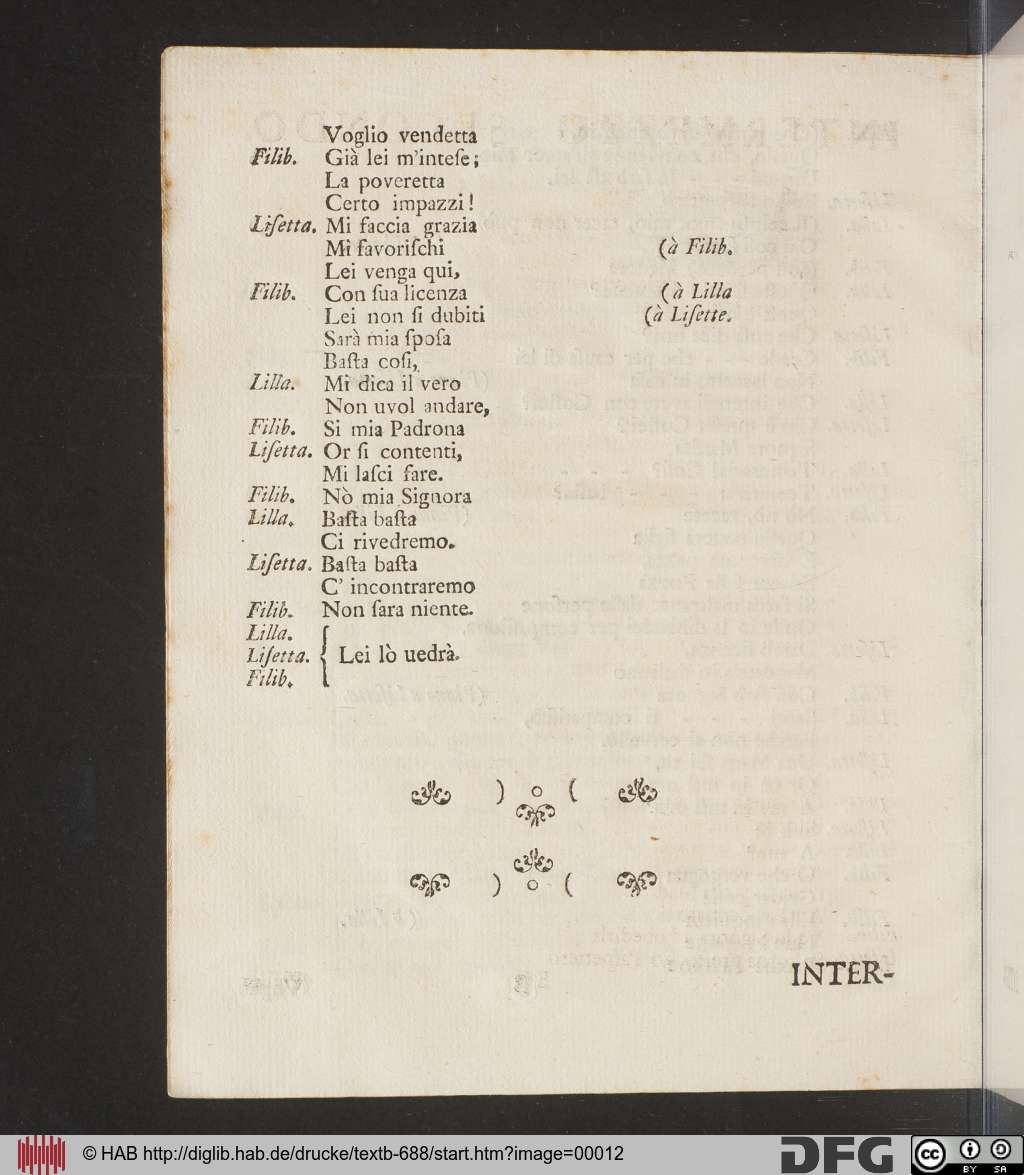 Voglio vendetta
Filib. Già lei m'inteſe;
La poveretta
Certo impazzi!
Liſetta. Mi faccia grazia
Mi favoriſchi (à Filib.
Lei venga qui,
Filib. Con ſua licenza (à Lilla
Lei non ſi dubiti (à Liſette.
Sarà mia ſpoſa
Baſta coſi,
Lilla. Mi dica il vero
Non uvol andare,
Filib. Si mia Padrona
Liſetta. Or ſi contenti,
Mi laſci fare.
Filib. Nò mia Signora
Lilla. Baſta baſta
Ci rivedremo.
Liſetta. Baſta baſta
C' incontraremo
Filib. Non ſara niente.
Lilla.
Liſetta. { Lei lò uedrà.
Filib.
) o (
) o (
INTER-
© HAB http://diglib.hab.de/drucke/textb-688/start.htm?image=00012
DFG
cc BY SA